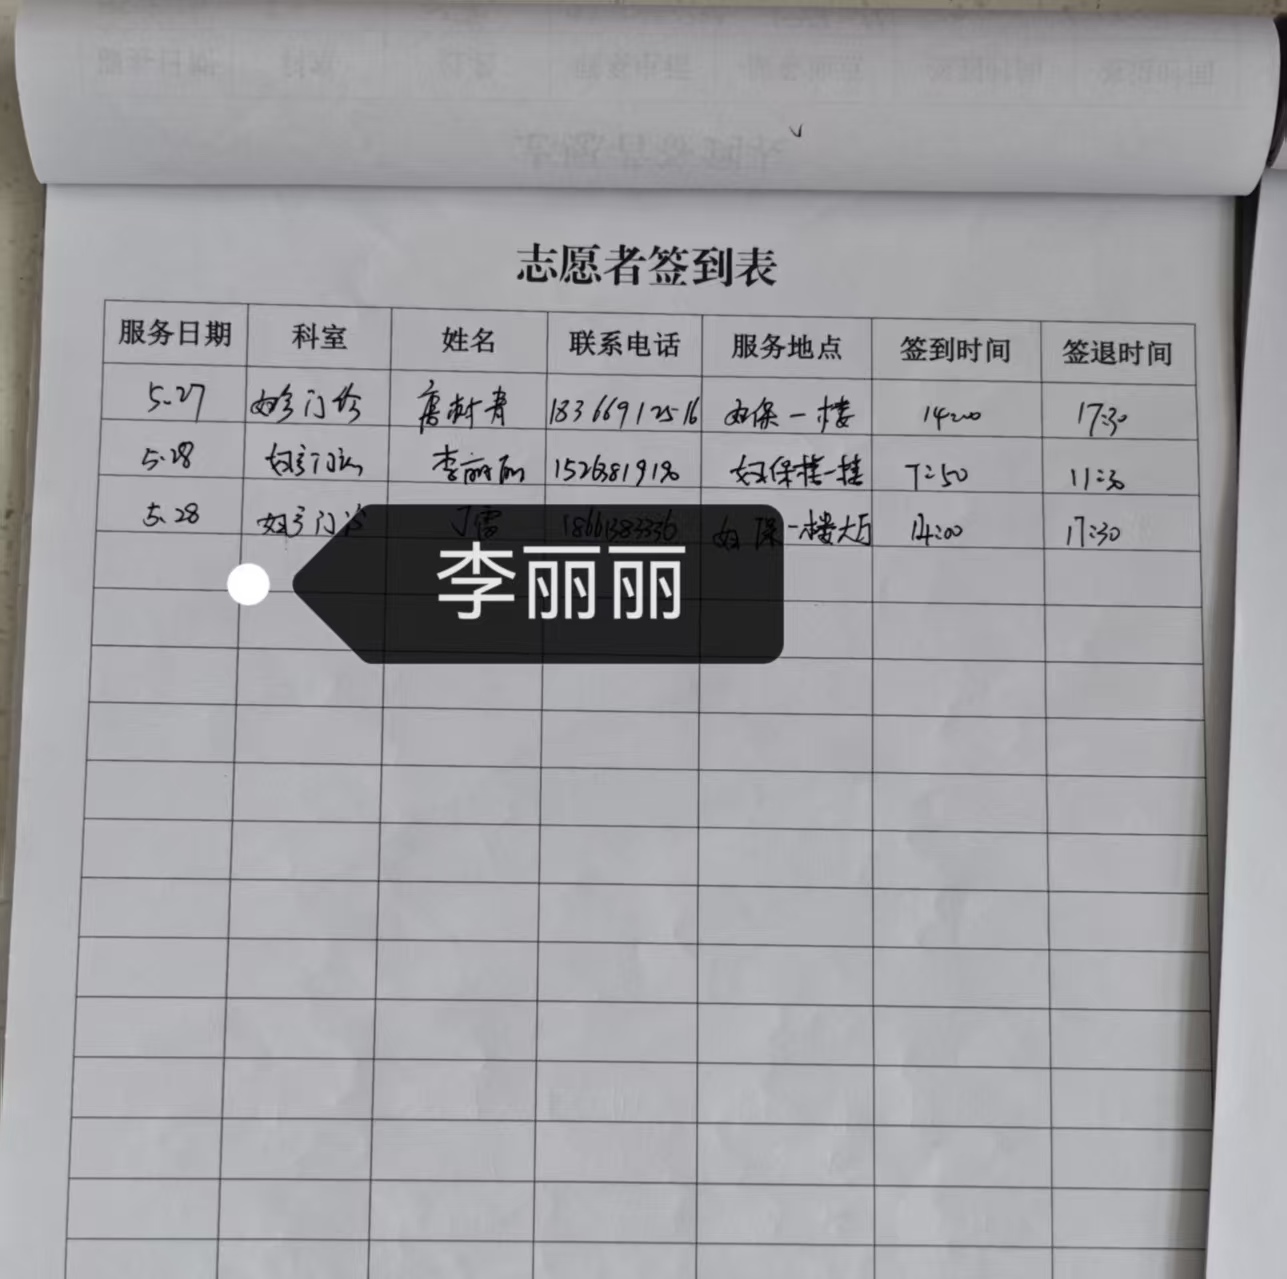 志愿者签到表
服务日期 科室 姓名 联系电话 服务地点 签到时间 签退时间
5.27 妇科门诊 18366912516 妇保一楼 14:00 17:30
5.28 妇科门诊 李丽丽 妇保楼一楼 7:50 11:30
5.28 妇科门诊 丁雪 18661383336 妇保一楼大厅 14:00 17:30
李丽丽